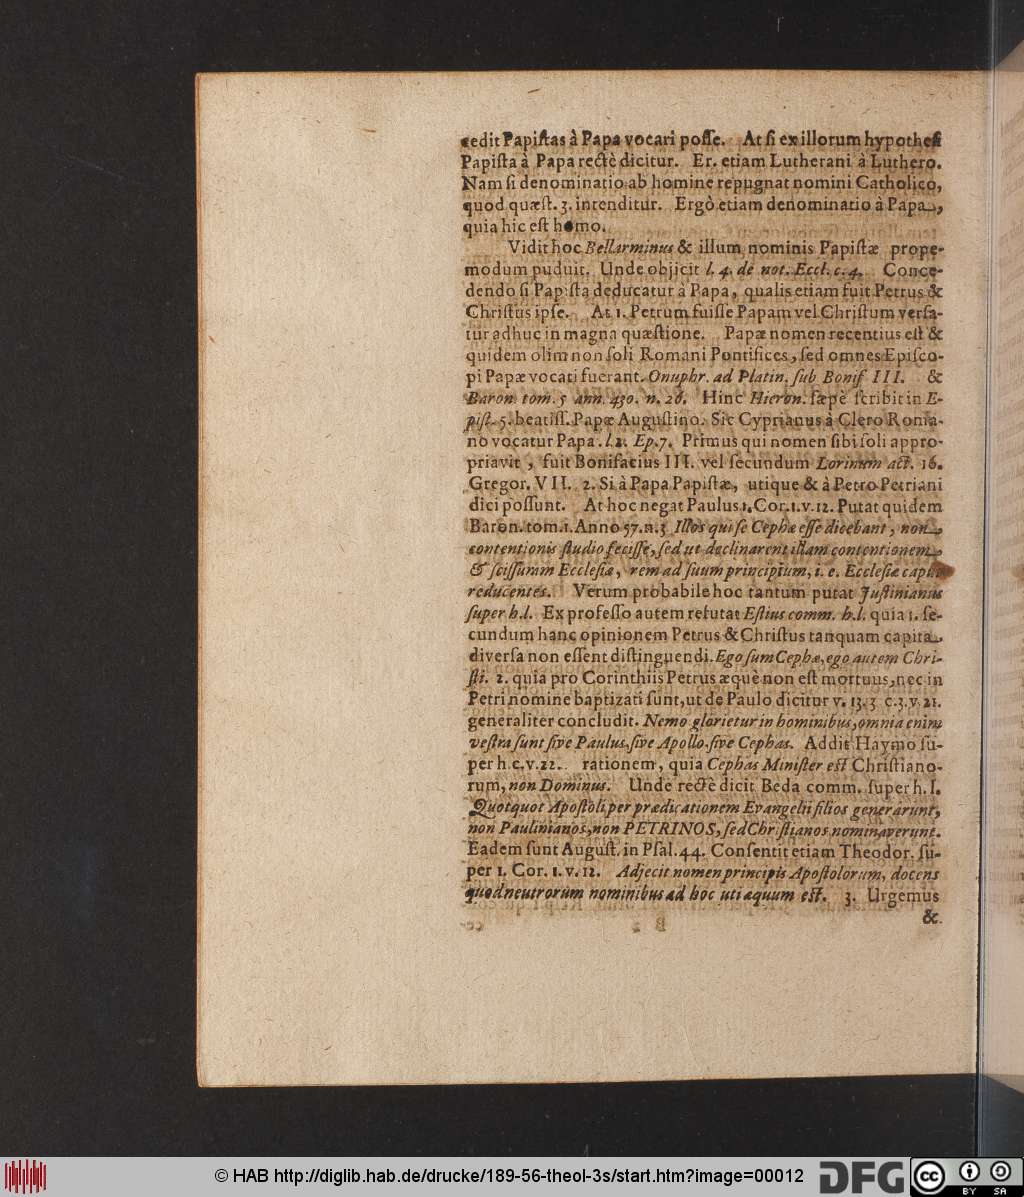 cedit Papiſtas à Papa vocari poſſe. At ſi ex illorum hypotheſi
Papiſta à Papa rectè dicitur. Er. etiam Lutherani à Luthero.
Nam ſi denominatio ab homine repugnat nomini Catholico,
quod quæſt. 3. intenditur. Ergò etiam denominatio à Papa,
quia hic eſt homo.
Vidit hoc Bellarminus & illum nominis Papiſtæ prope-
modum puduit. Unde objicit l. 4. de not. Eccl. c. 4. Conce-
dendo ſi Papiſta deducatur à Papa, qualis etiam fuit Petrus &
Chriſtus ipſe. At 1. Petrum fuiſſe Papam vel Chriſtum verſa-
tur adhuc in magna quæſtione. Papæ nomen recentius eſt &
quidem olim non ſoli Romani Pontifices, ſed omnes Epiſco-
pi Papæ vocati fuerant. Onuphr. ad Platin. ſub Bonif III. &
Baron. tom. 5 ann. 430. n. 26. Hinc Hieron. ſæpè ſcribit in E-
piſt. 5. beatiſſ. Papæ Auguſtino. Sic Cyprianus à Clero Roma-
no vocatur Papa. l. 2. Ep. 7. Primus qui nomen ſibi ſoli appro-
priavit, fuit Bonifacius III. vel ſecundum Lorinum act. 16.
Gregor. VII. 2. Si à Papa Papiſtæ, utique & à Petro Petriani
dici poſſunt. At hoc negat Paulus 1. Cor. 1. v. 12. Putat quidem
Baron. tom. 1. Anno 57. n. 3 Illos qui ſe Cephæ eſſe dicebant, non
contentionis ſtudio feciſſe, ſed ut declinarent illam contentionem
& ſciſſuram Eccleſiæ, rem ad ſuum principium, i. e. Eccleſiæ caput
reducentes. Verum probabile hoc tantum putat Juſtinianus
ſuper h. l. Ex profeſſo autem refutat Eſtius comm. h. l. quia 1. ſe-
cundum hanc opinionem Petrus & Chriſtus tanquam capita
diverſa non eſſent diſtinguendi. Ego ſum Cephæ, ego autem Chri-
ſti. 2. quia pro Corinthiis Petrus æquè non eſt mortuus, nec in
Petri nomine baptizati ſunt, ut de Paulo dicitur v. 13. 3 c. 3. v. 21.
generaliter concludit. Nemo glorietur in hominibus, omnia enim
veſtra ſunt ſive Paulus, ſive Apollo, ſive Cephas. Addit Haymo ſu-
per h. c. v. 22. rationem, quia Cephas Miniſter eſt Chriſtiano-
rum, non Dominus. Unde rectè dicit Beda comm. ſuper h. l.
Quotquot Apoſtoli per prædicationem Evangelii filios generarunt,
non Paulinianos, non PETRINOS, ſed Chriſtianos nominaverunt.
Eadem ſunt Auguſt. in Pſal. 44. Conſentit etiam Theodor. ſu-
per 1. Cor. 1. v. 12. Adjecit nomen principis Apoſtolorum, docens
quod neutrorum nominibus ad hoc uti æquum eſt. 3. Urgemus
&
© HAB http://diglib.hab.de/drucke/189-56-theol-3s/start.htm?image=00012
DFG
cc BY SA